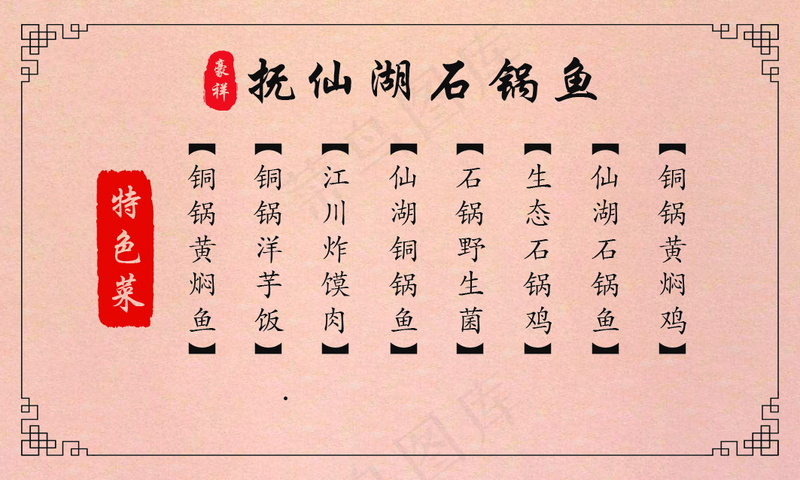 豪祥
抚仙湖石锅鱼
特色菜
【铜锅黄焖鱼】
【铜锅洋芋饭】
【江川炸馍肉】
【仙湖铜锅鱼】
【石锅野生菌】
【生态石锅鸡】
【仙湖石锅鱼】
【铜锅黄焖鸡】